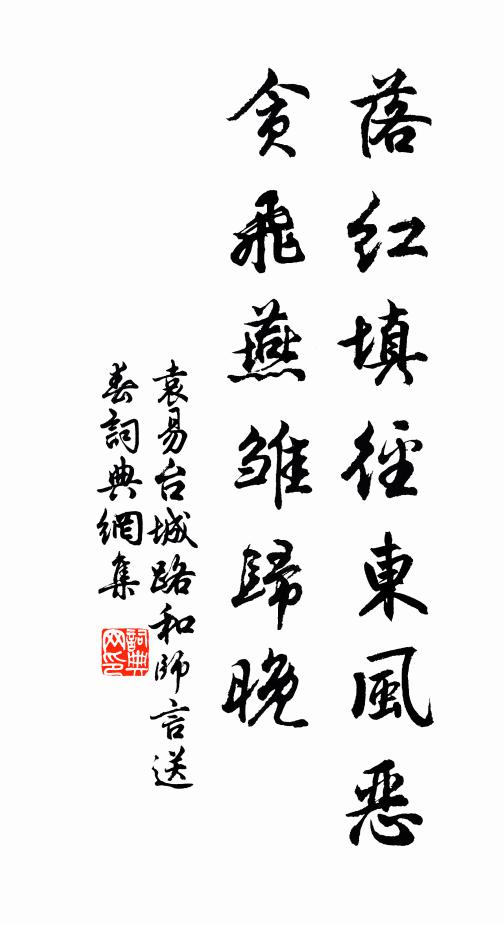 落红填径東風惡
貪飛燕雏歸晚
袁易台城路和師言送
春詞典網集
詞典网印